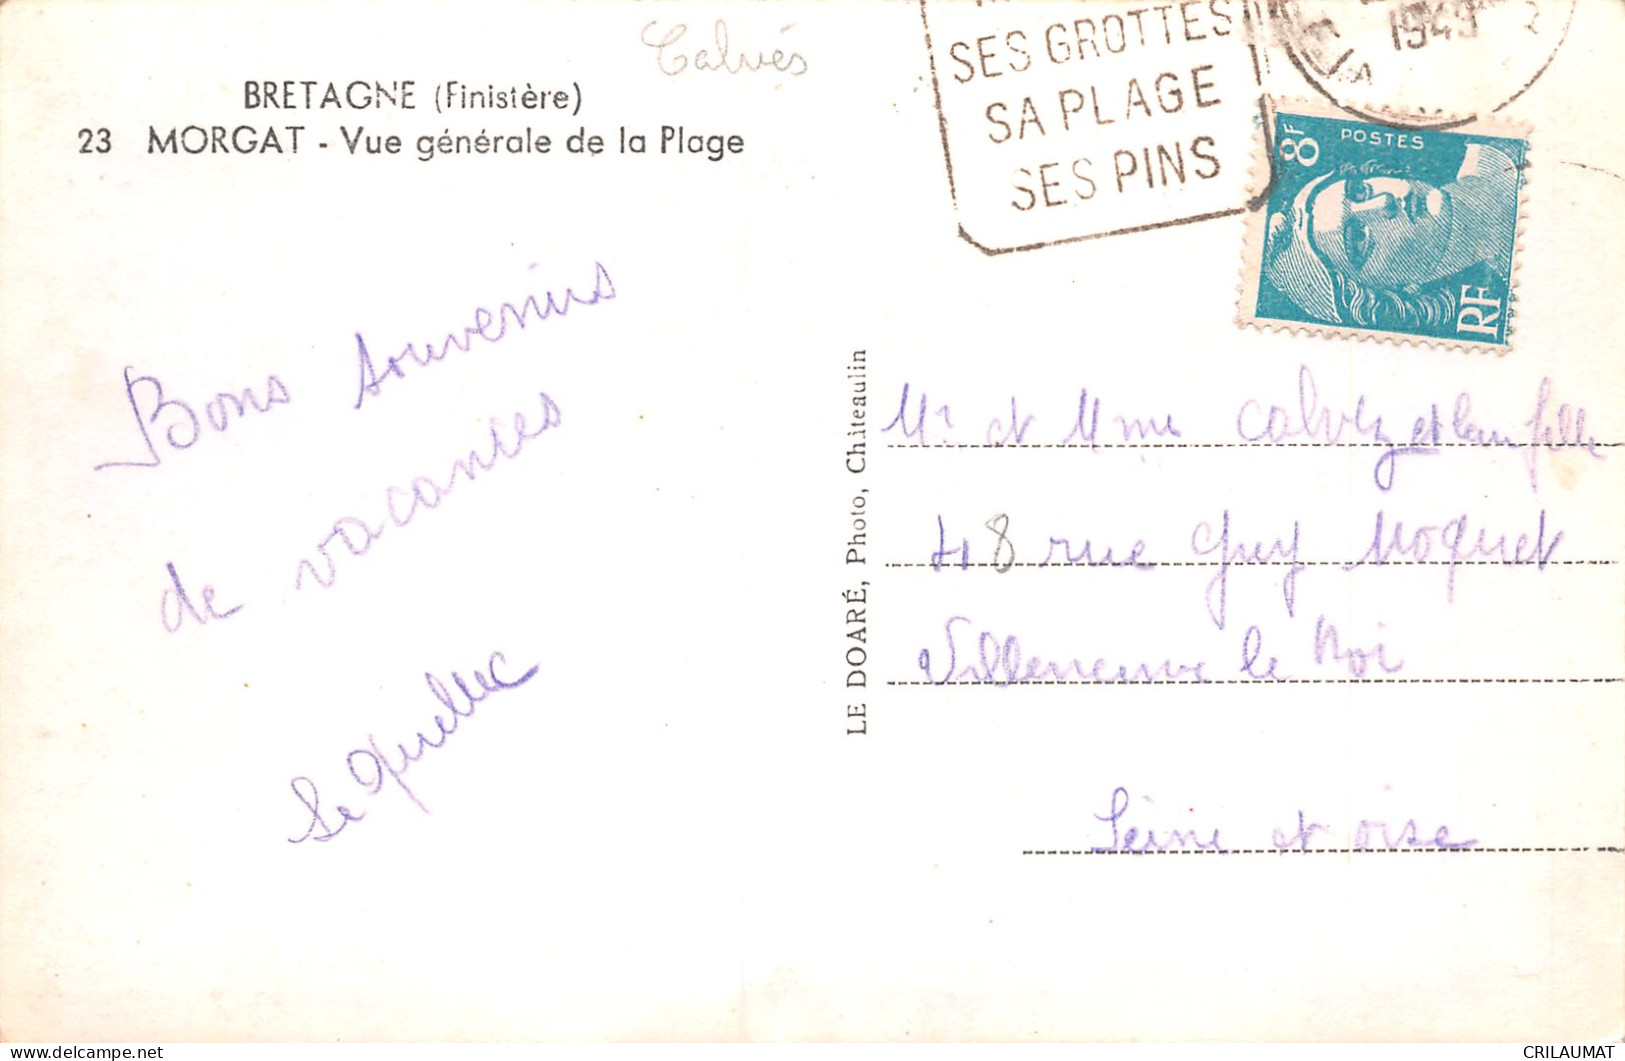 Calvés
BRETAGNE (Finistère)
23 MORGAT - Vue générale de la Plage
SES GROTTES
SA PLAGE
SES PINS
1949
2
8F
POSTES
RF
Bons souvenirs
de vacances
Le Quellec
LE DOARÉ, Photo, Châteaulin
Mr et Mme Calvez et leur fille
48 rue Guy Moquet
Villeneuve le Roi
Seine et oise
CRILAUMAT